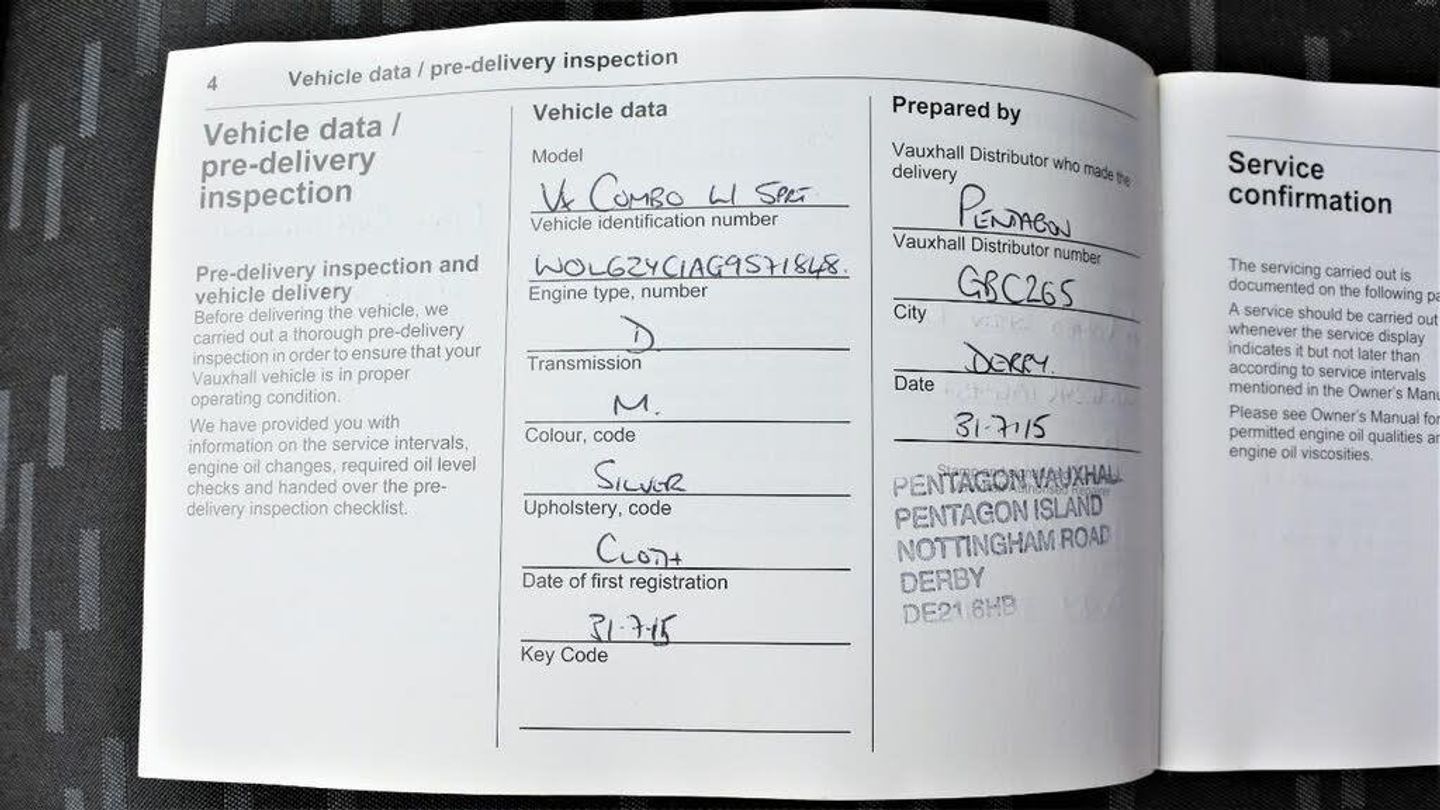 4 Vehicle data / pre-delivery inspection
Vehicle data /
pre-delivery
inspection
Pre-delivery inspection and
vehicle delivery
Before delivering the vehicle, we
carried out a thorough pre-delivery
inspection in order to ensure that your
Vauxhall vehicle is in proper
operating condition.
We have provided you with
information on the service intervals,
engine oil changes, required oil level
checks and handed over the pre-
delivery inspection checklist.
Vehicle data
Model
Vx COMBO L1 SPRT
Vehicle identification number
WOL6ZYC1AG9571848.
Engine type, number
D
Transmission
M.
Colour, code
SILVER
Upholstery, code
CLOTH
Date of first registration
31-7-15
Key Code
Prepared by
Vauxhall Distributor who made the
delivery
PENTAGON
Vauxhall Distributor number
GBC265
City
DERBY.
Date
31-7-15
PENTAGON VAUXHALL
PENTAGON ISLAND
NOTTINGHAM ROAD
DERBY
DE21 6HB
Service
confirmation
The servicing carried out is
documented on the following
A service should be carried out
whenever the service display
indicates it but not later than
according to service intervals
mentioned in the Owner's
Please see Owner's Manual for
permitted engine oil qualities
engine oil viscosities.